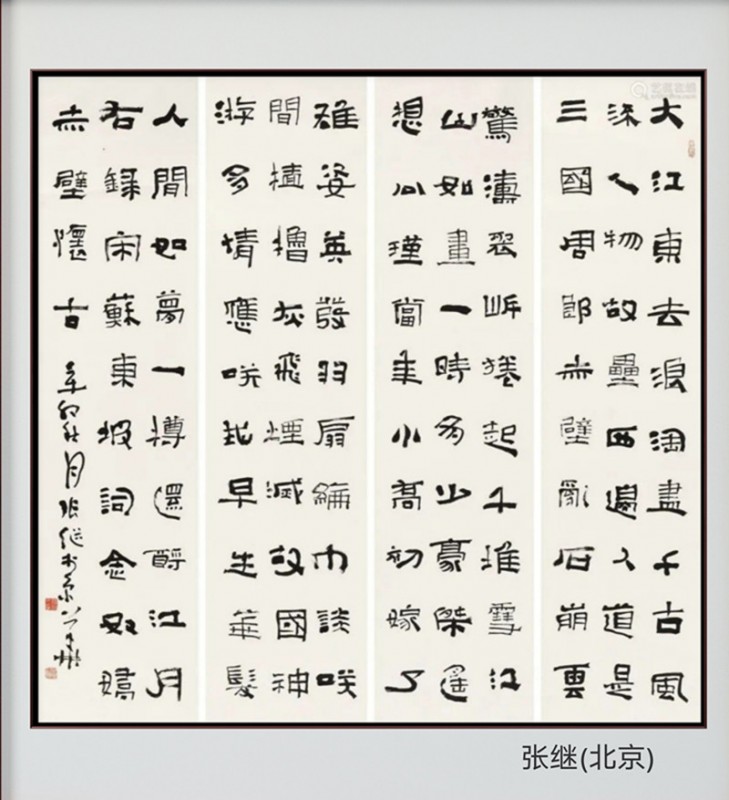 大江東去浪淘盡千古風
流人物故壘西邊人道是
三國周郎赤壁亂石崩雲
驚濤裂岸捲起千堆雪江
山如畫一時多少豪傑遥
想公瑾當年小喬初嫁了
雄姿英發羽扇綸巾談咲
間檣櫓灰飛煙滅故國神
游多情應咲我早生華髮
人間如夢一樽還酹江月
右録宋蘇東坡詞念奴嬌
赤壁懷古 辛卯秋月張继书京
张继(北京)